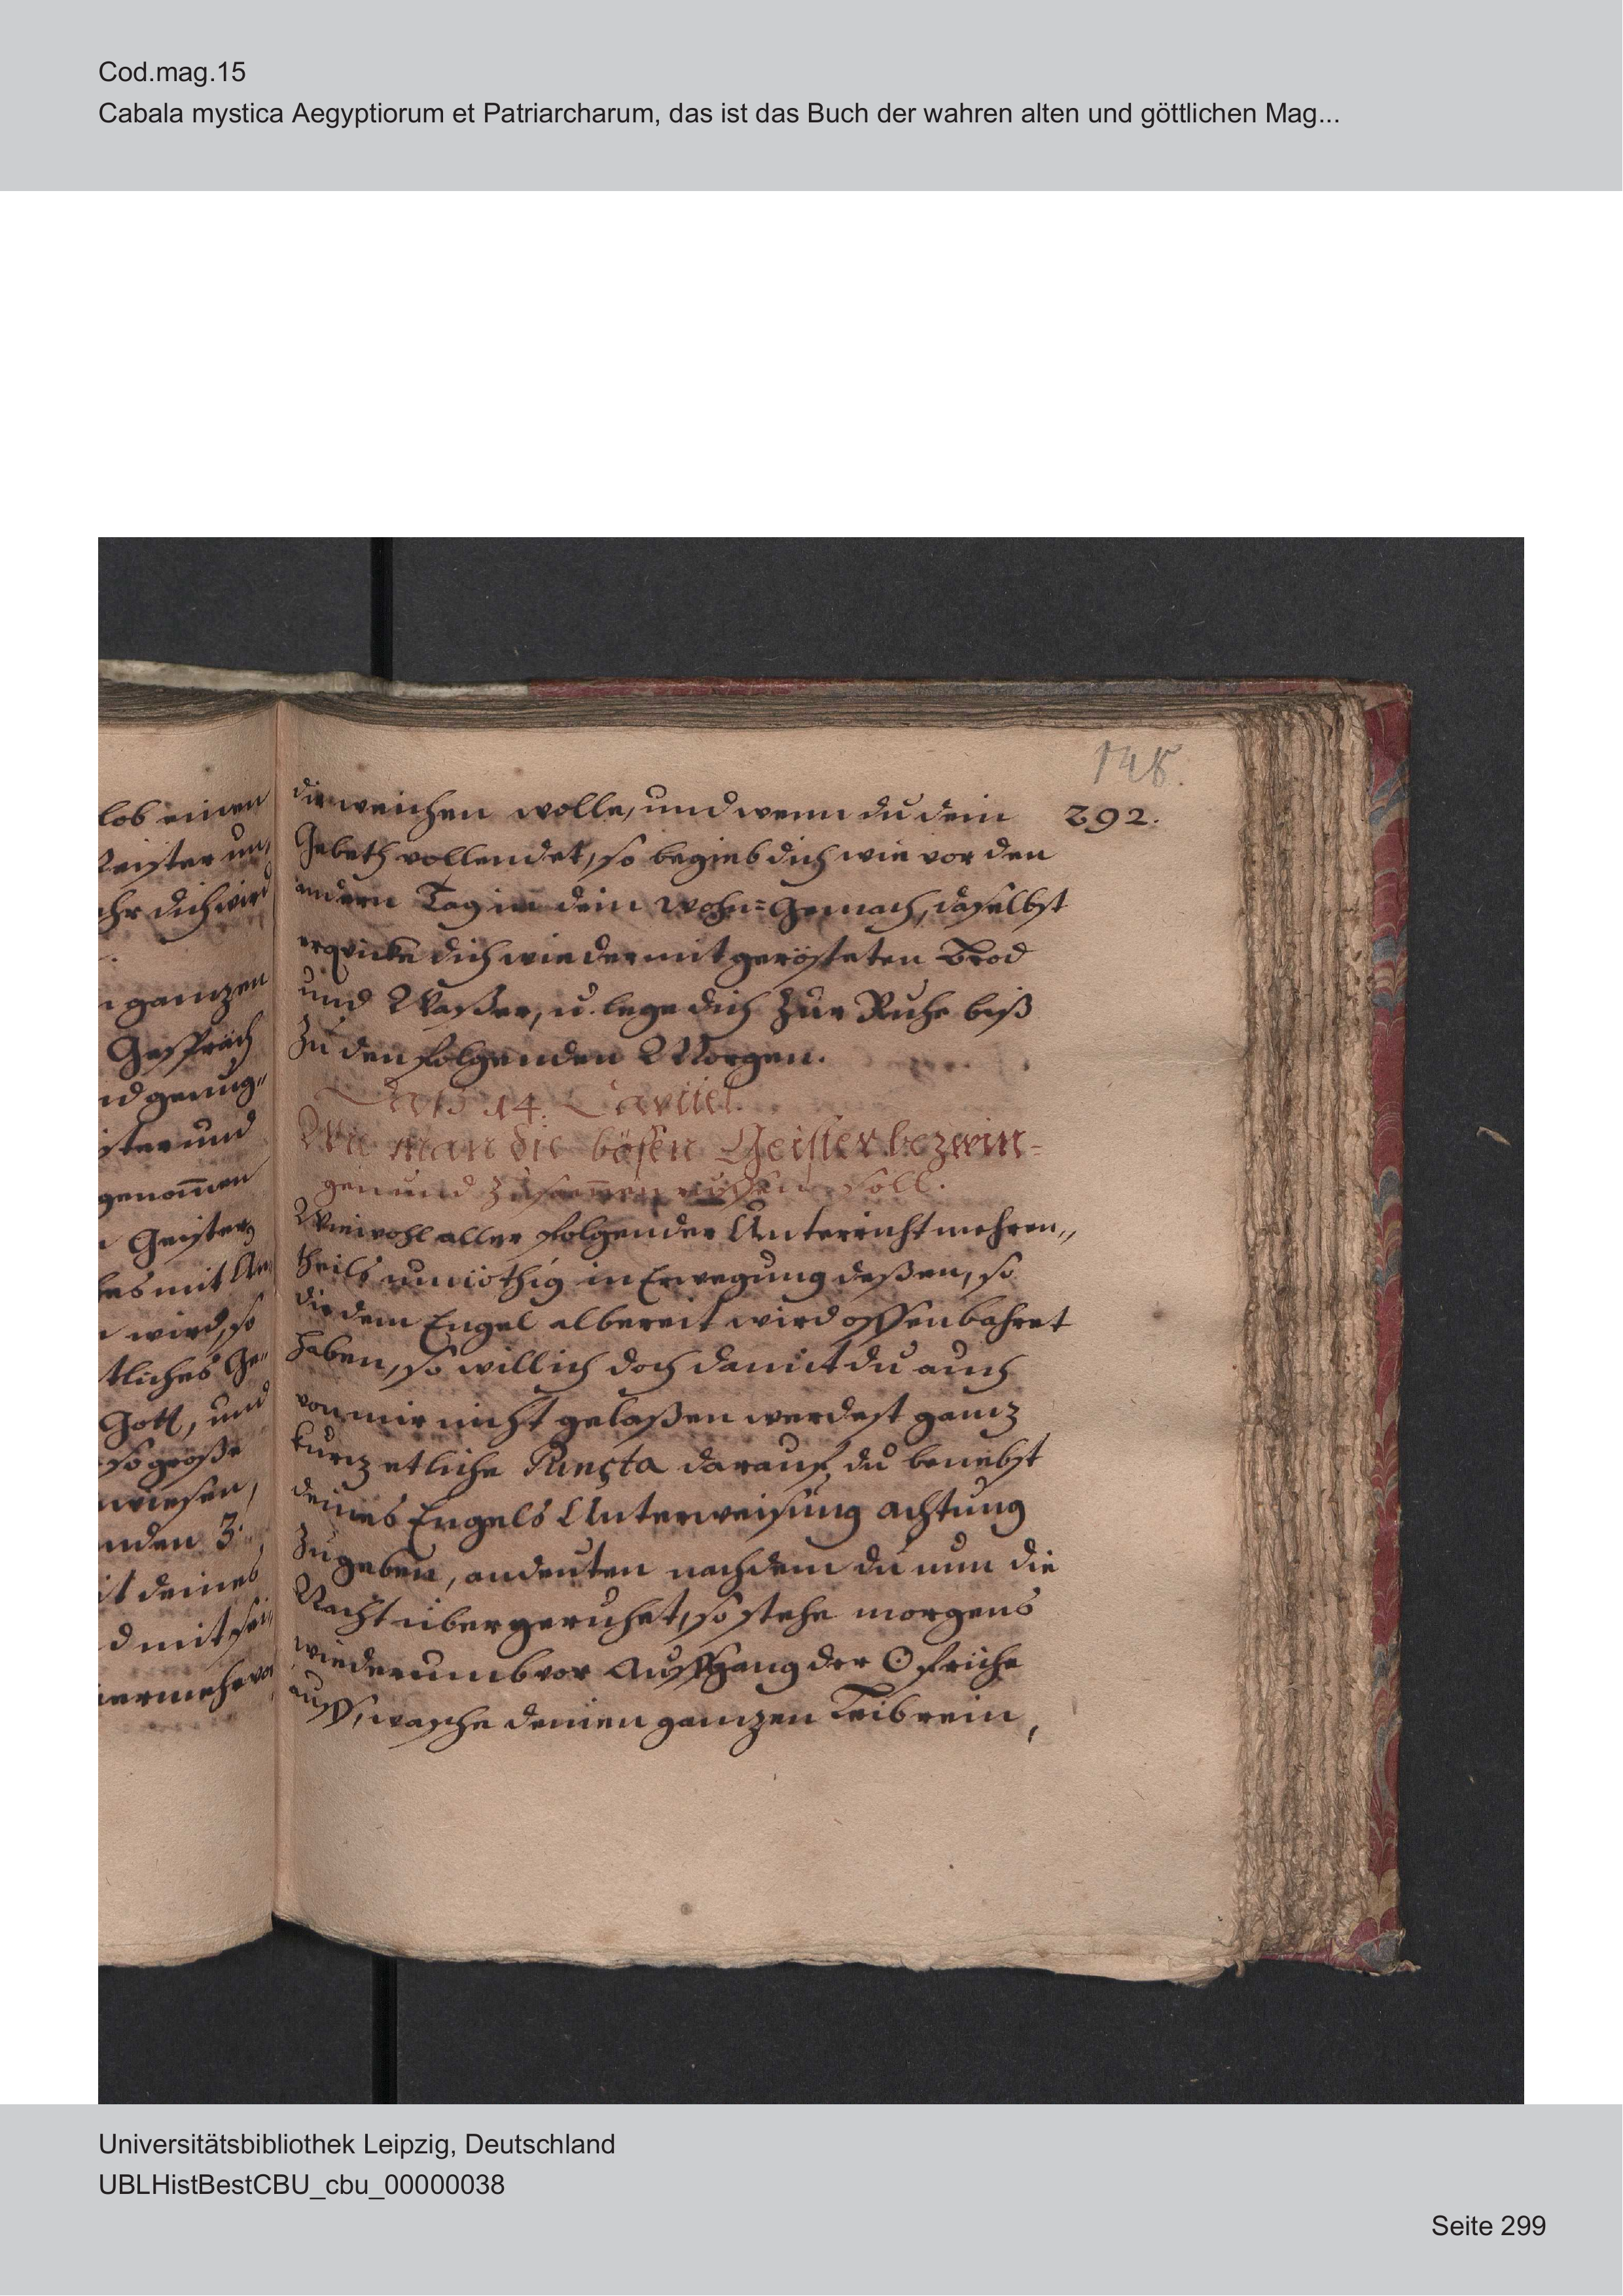 Cod.mag.15
Cabala mystica Aegyptiorum et Patriarcharum, das ist das Buch der wahren alten und göttlichen Mag...
148.
292.
lob einen
Geister un,
ihr dich wird
ganzen
Gespräch
nd genug„
ister und
genom̄en
Geister
wird, so
tliches Ge„
Gott, und
so große
wiesen,
nden 3.
it deines
d mit sei„
dir weichen wolle, und wenn du dein
Gebeth vollendet, so begieb dich wie vor den
andern Tag in dein Wohn=Gemach, daselbst
erqvicke dich wieder mit gerösteten Brod
und Waßer, u. lege dich zur Ruhe biß
zu den folgenden Morgen.
Das 14. Capitel.
Wie man die bösen Geister bezwin=
gen und zusam̄en ruffen soll.
Wiewohl aller folgender Unterricht mehren„
theils unnöthig in Erwegung deßen, so
dir dein Engel albereit wird offenbahret
haben, so will ich doch damit du auch
von mir nicht gelaßen werdest ganz
kurz etliche Puncta darauf du benebst
deines Engels Unterweisung achtung
zu geben, andeuten nachdem du nun die
Nacht über geruhet, so stehe morgens
wiederumb vor Auffgang der ☉ friche
auff, wasche deinen ganzen Leib rein,
Universitätsbibliothek Leipzig, Deutschland
UBLHistBestCBU_cbu_00000038
Seite 299